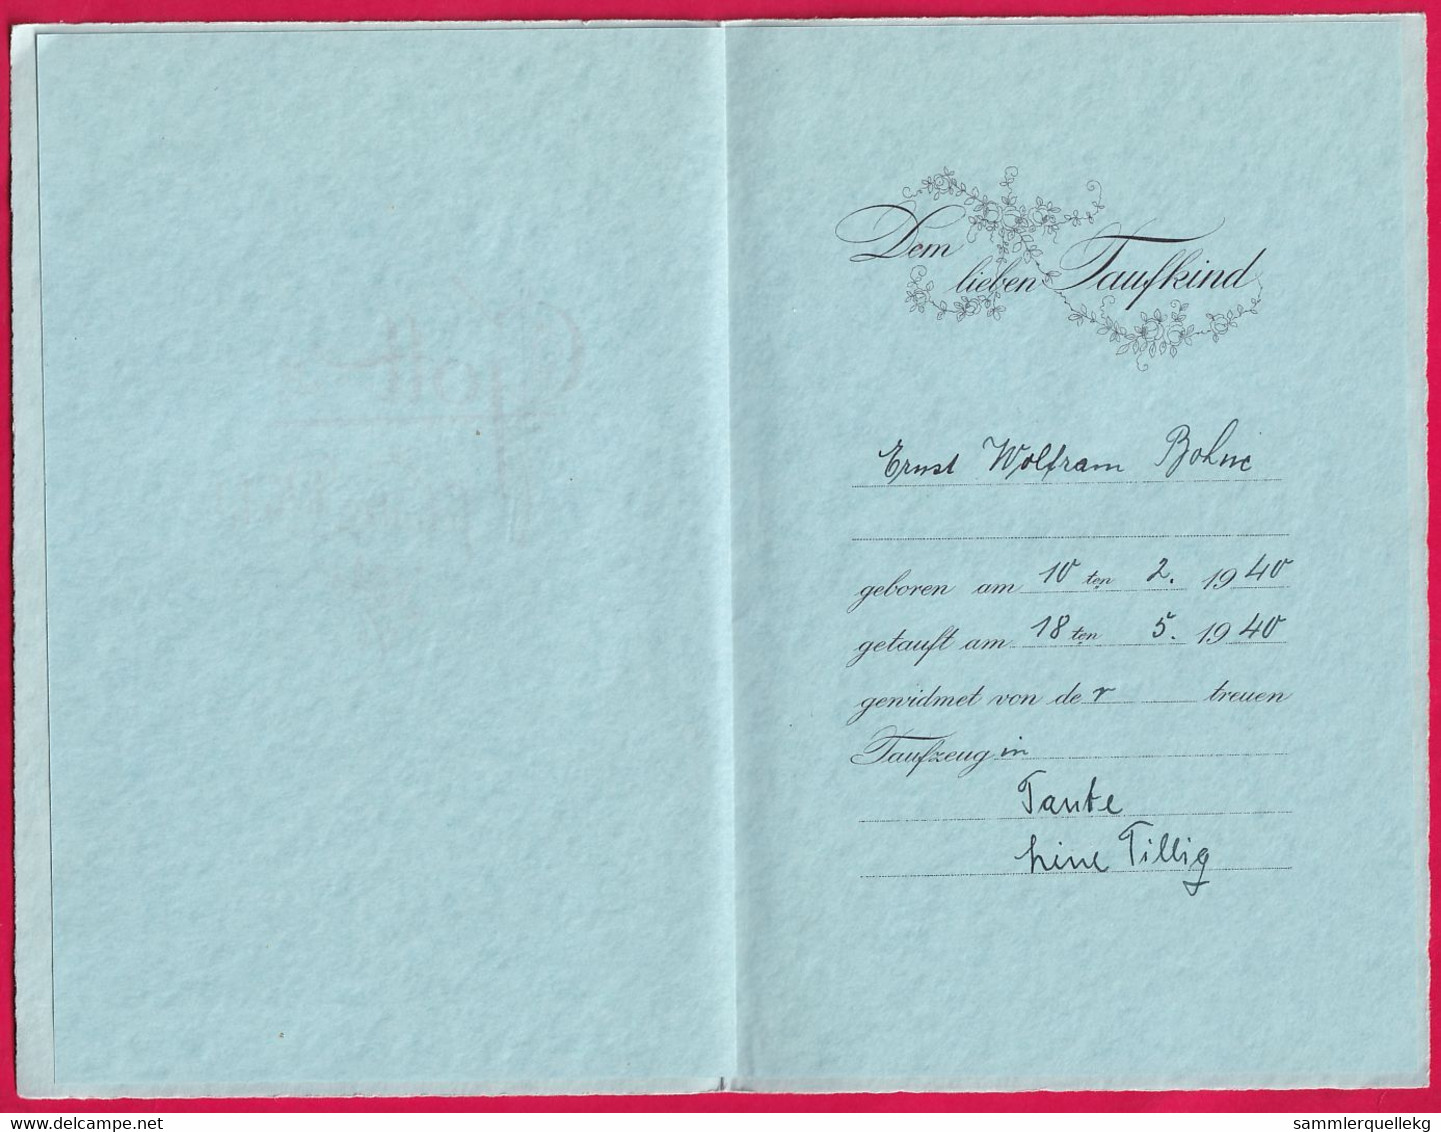 Dem
lieben Taufkind
Ernst Wolfram Bohne
geboren am 10 ten 2. 1940
getauft am 18 ten 5. 1940
gewidmet von der treuen
Taufzeugin
Tante
Line Tillig
sammlerquellekg